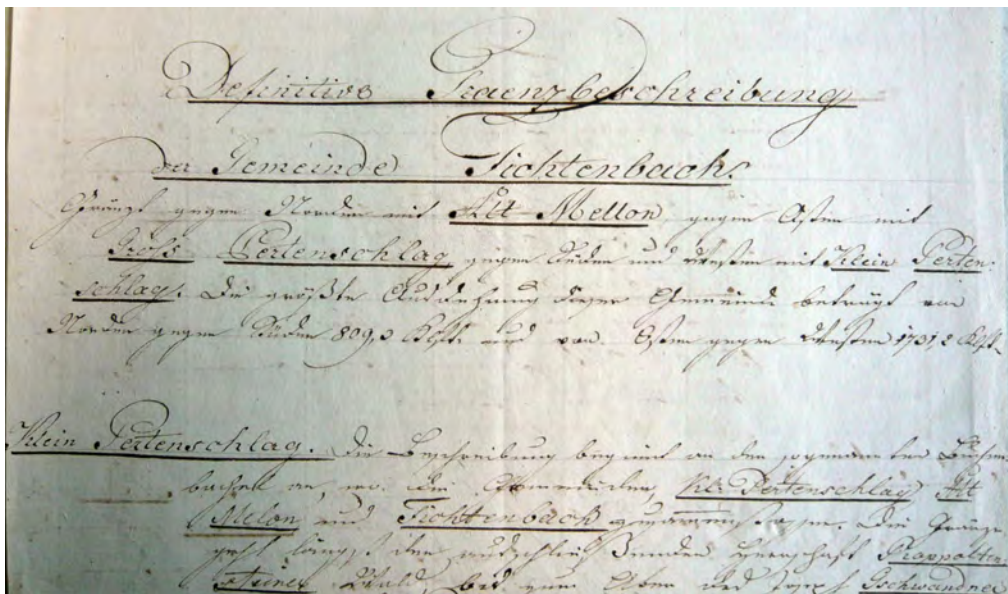 Definitive Graenzbeschreibung
der Gemeinde Fichtenbach.
Gränzt gegen Norden mit Alt-Mellon gegen Osten mit
Groß Pertenschlag gegen Süden und Westen mit Klein Perten-
schlag. Die größte Ausdehnung dieser Gemeinde beträgt von
Norden gegen Süden 809,0 Klft. und von Osten gegen Westen 1731,8 Klft.
Klein Pertenschlag. Die Beschreibung beginnt an den sogenannten
bachel an, wo die Gemeinden, Kln Pertenschlag Alt
Melon und Fichtenbach zusammenstoßen. Die Gränze
geht längst den Herrschaft Rappolten-
steiner Wald, bis zum des Joseph Gschwandner